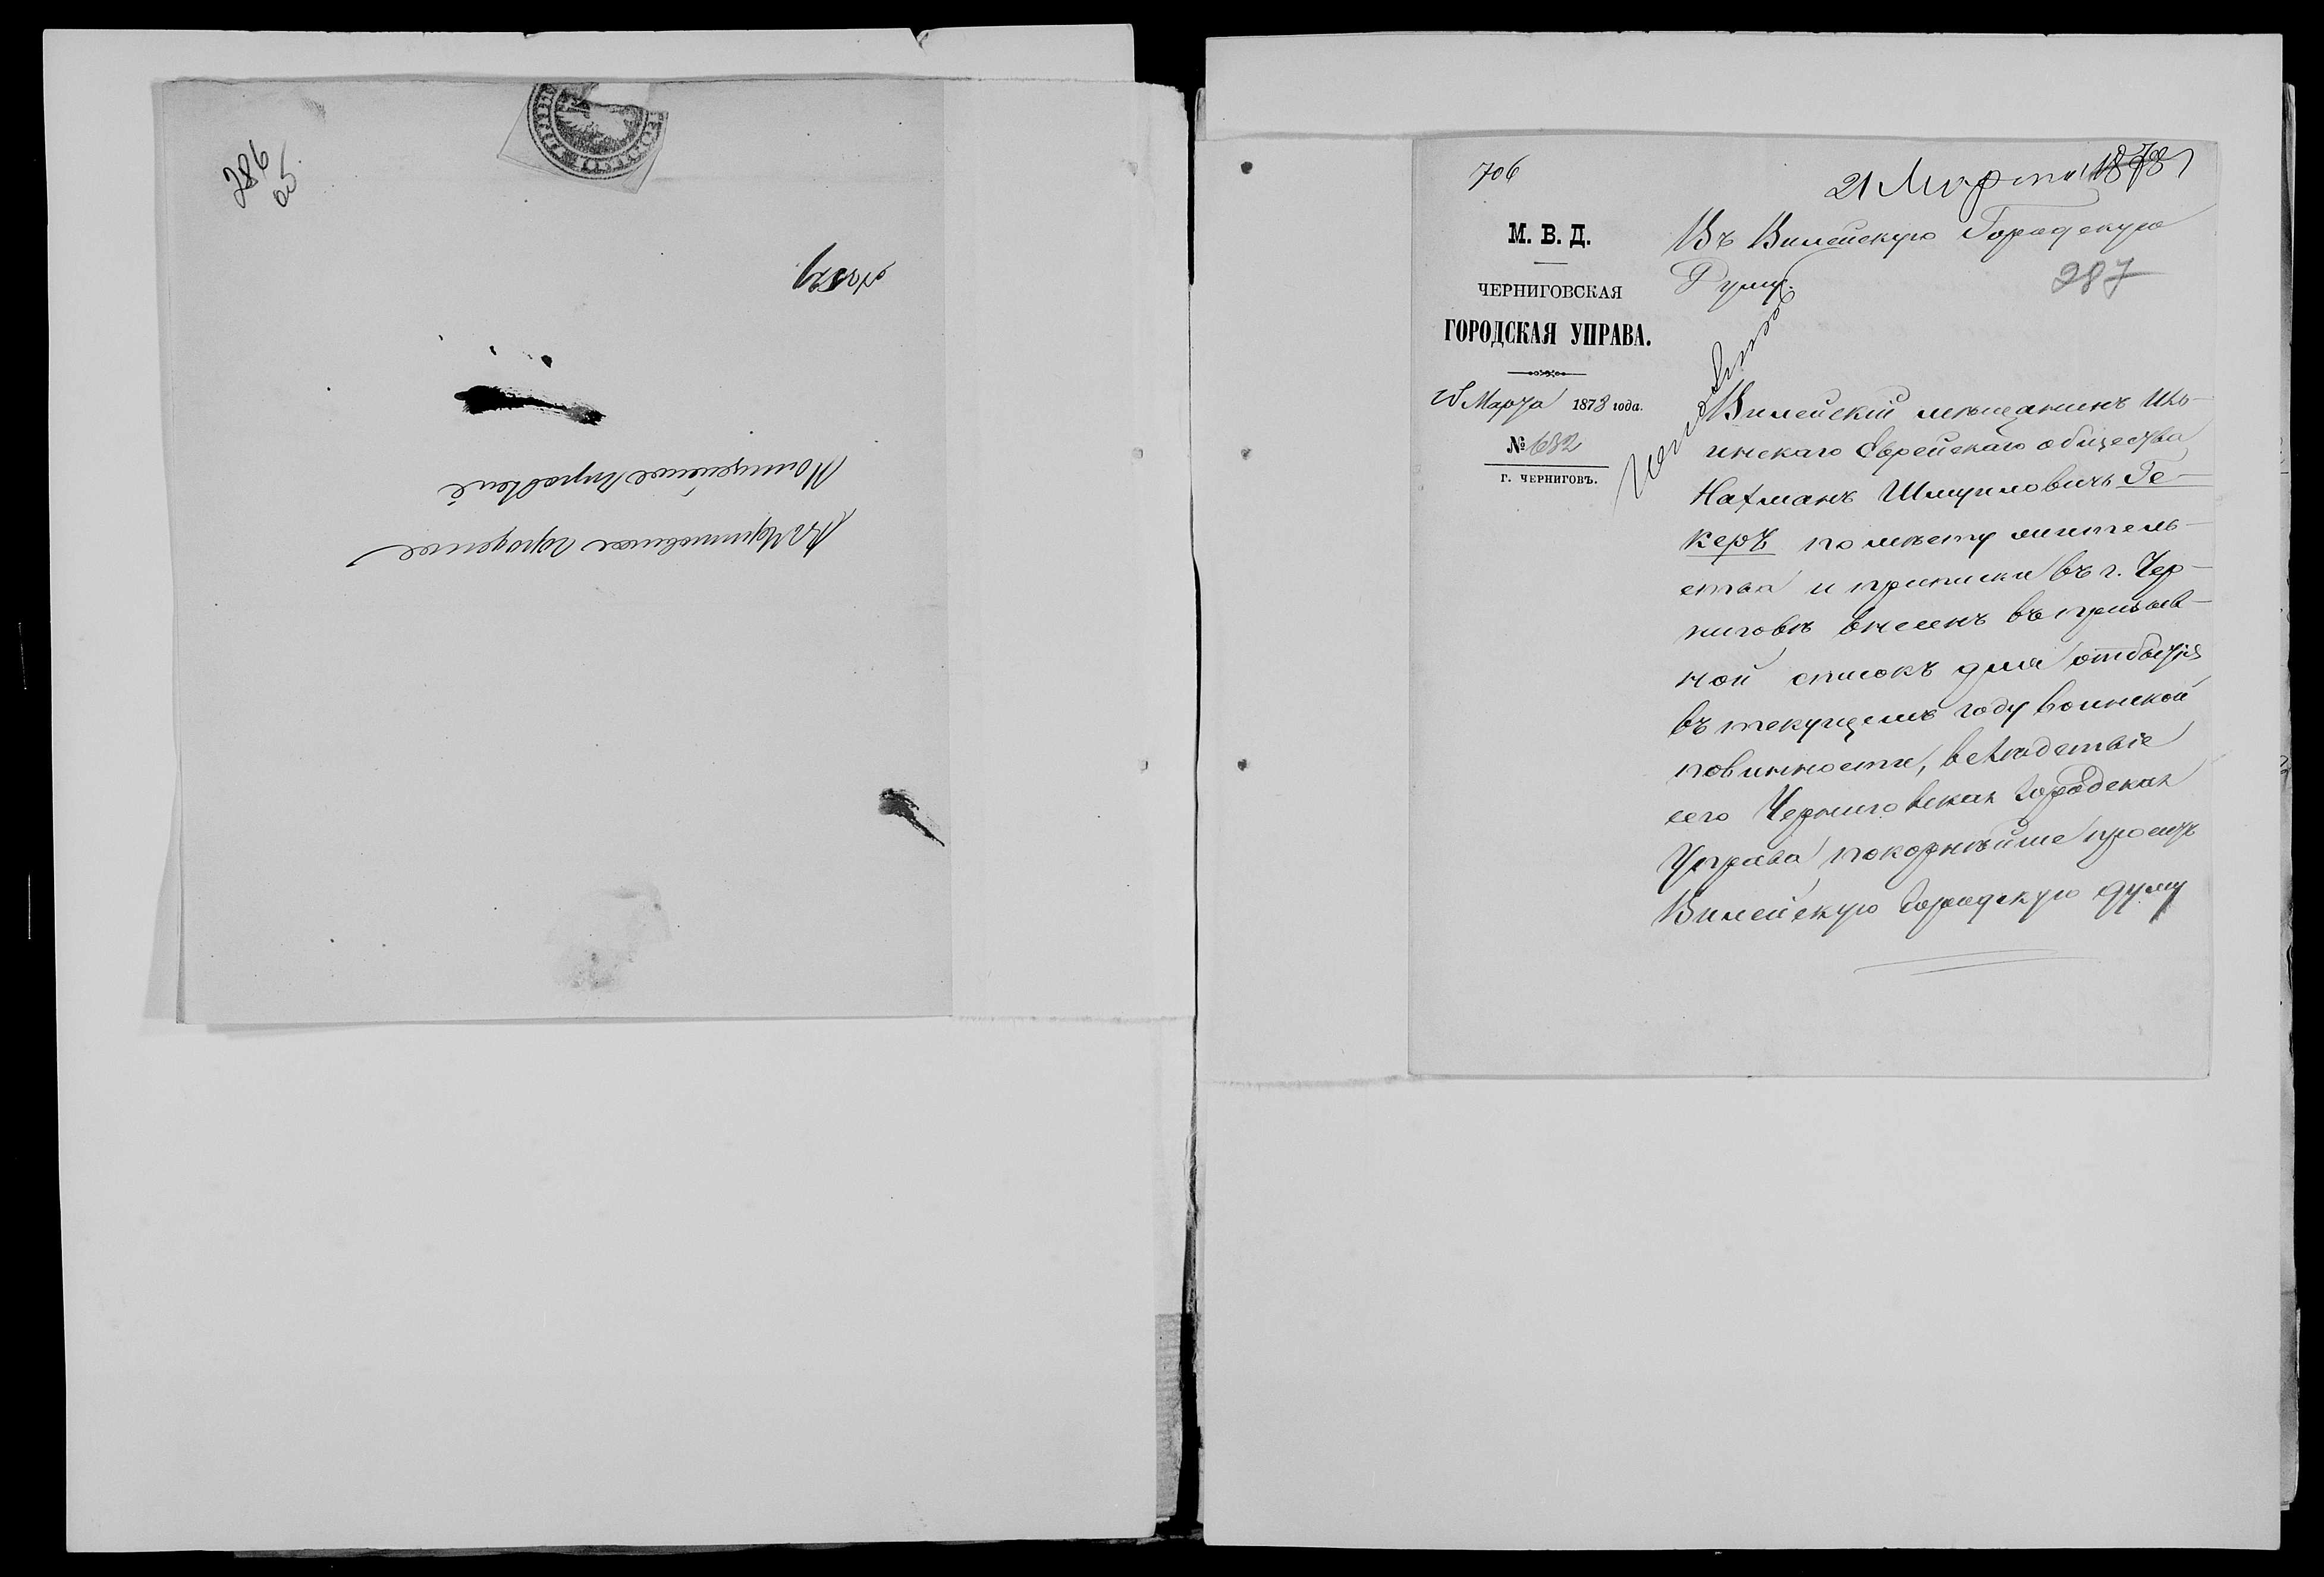 286
об
№ 829
Въ Черниговское городское
Полицейское Управление
706
21 Марта 1878
М. В. Д.
ЧЕРНИГОВСКАЯ
ГОРОДСКАЯ УПРАВА.
Марта 1878 года.
№ 632
Г. ЧЕРНИГОВЪ.
Въ Вилейскую Городскую
Думу.
287
Вилейскій мѣщанинъ Иль-
инскаго Еврейскаго общества
Нахманъ Шмуиловичъ Ге-
керъ по мѣсту житель-
ства и приписки въ г. Чер-
ниговѣ внесенъ въ призыв-
ной списокъ для отбытія
въ текущемъ году воинской
повинности, вслѣдствіе
сего Черниговская Городская
Управа покорнѣйше проситъ
Вилейскую Городскую думу